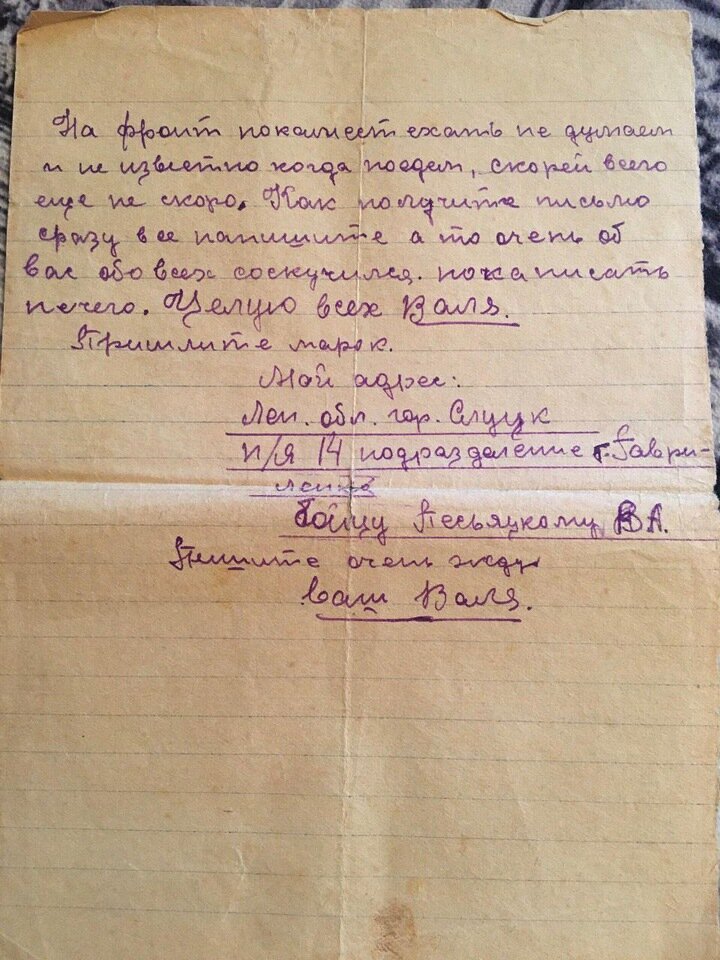 На фронт покамест ехать не думаем
и не известно когда поедем, скорей всего
еще не скоро. Как получите письмо
сразу все напишите а то очень об
вас обо всех соскучился. пока писать
нечего. Целую всех Валя.
Пришлите марок.
Мой адрес:
Лен. обл. гор. Слуцк
п/я 14 подразделение т. Гаври-
Бойцу Песьяцкому В А.
Пишите очень жду
Ваш Валя.